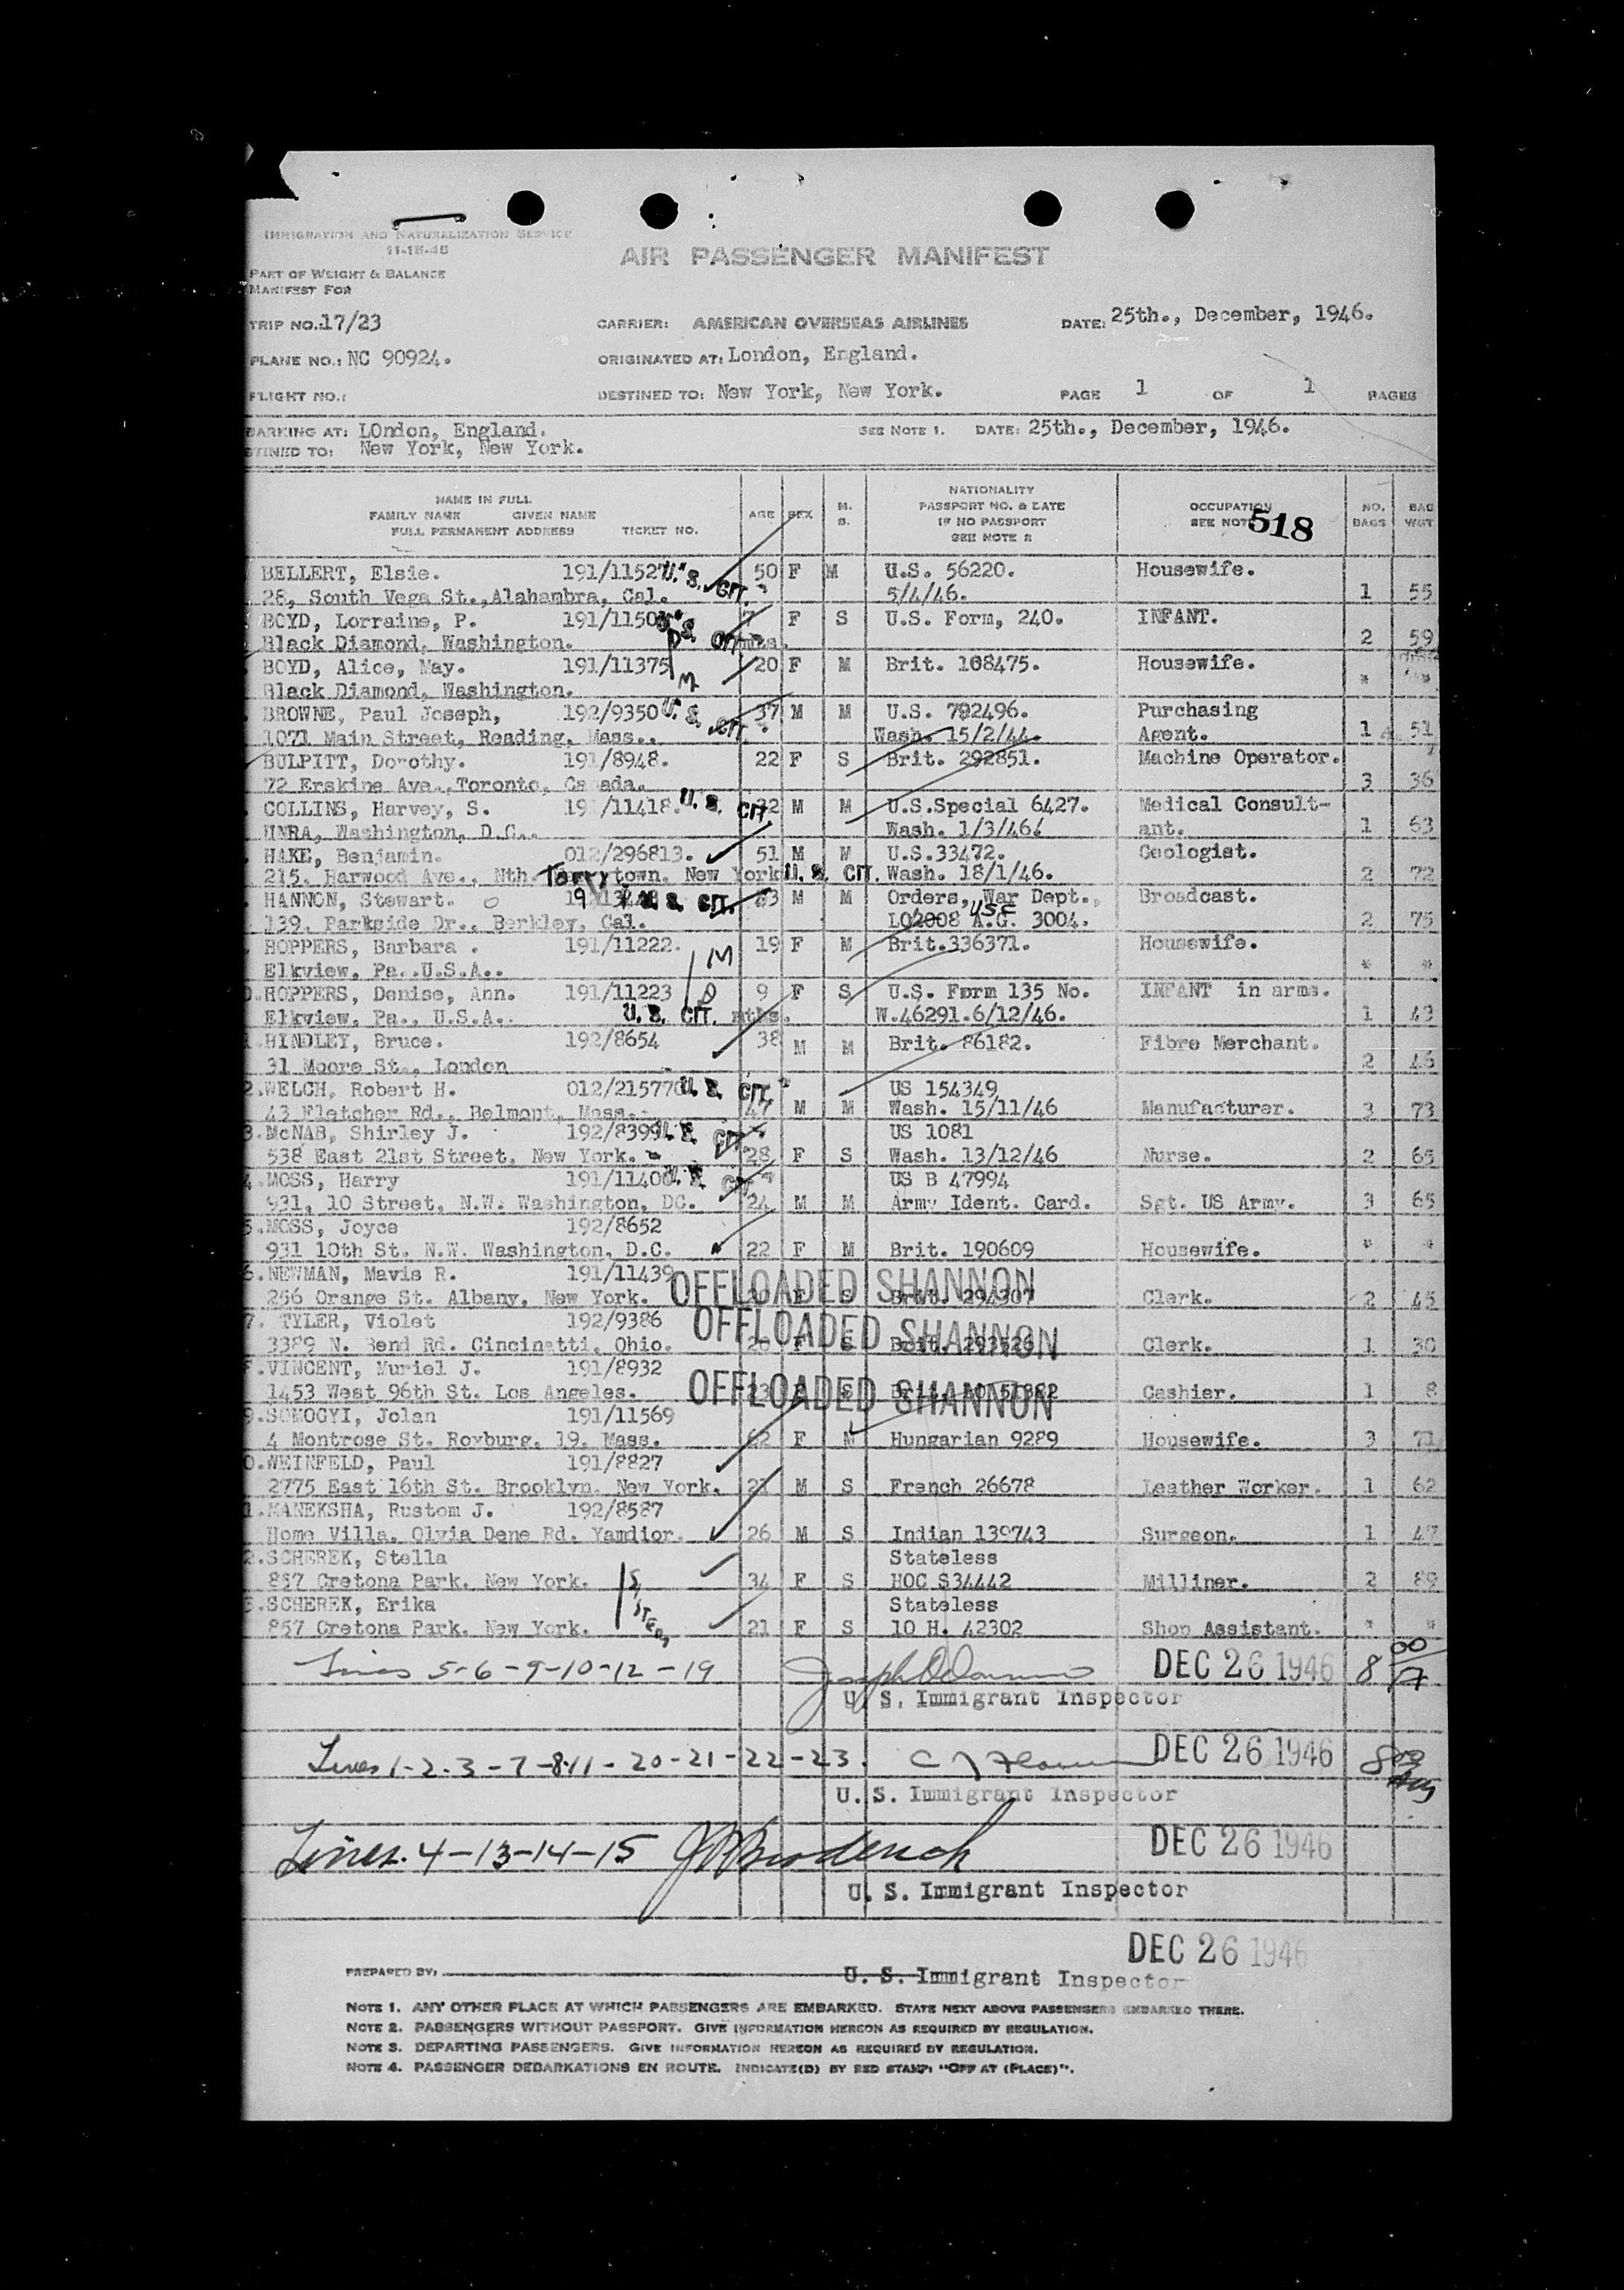 IMMIGRATION AND NATURALIZATION SERVICE
11-15-45
AIR PASSENGER MANIFEST
PART OF WEIGHT & BALANCE
MANIFEST FOR
TRIP NO.:17/23 CARRIER: AMERICAN OVERSEAS AIRLINES DATE: 25th., December, 1946.
PLANE NO.: NC 90924. ORIGINATED AT: London, England.
FLIGHT NO.: DESTINED TO: New York, New York. PAGE 1 OF 1 PAGES
BARKING AT: LOndon, England. SEE NOTE 1. DATE: 25th., December, 1946.
STINED TO: New York, New York.
NAME IN FULL
FAMILY NAME GIVEN NAME
FULL PERMANENT ADDRESS TICKET NO. AGE SEX M. S. NATIONALITY PASSPORT NO. & DATE IF NO PASSPORT SEE NOTE 2 OCCUPATION SEE NOTE 518 NO. BAGS BAG WGT
BELLERT, Elsie. 191/1152 U.S. CIT. 50 F M U.S. 56220. Housewife.
28, South Vega St.,Alahambra, Cal. 5/4/46. 1 55
BOYD, Lorraine, P. 191/1150 U.S. CIT. 7 F S U.S. Form, 240. INFANT.
Black Diamond, Washington. 2 59
BOYD, Alice, May. 191/11375 M 20 F M Brit. 108475. Housewife.
Black Diamond, Washington. * *
BROWNE, Paul Joseph, 192/9350 U.S. CIT. 37 M M U.S. 792496. Purchasing
1071 Main Street, Reading, Mass.. Wash. 15/2/44. Agent. 1 51
BULPITT, Dorothy. 191/8948. 22 F S Brit. 292851. Machine Operator.
72 Erskine Ave., Toronto, Canada. 3 36
COLLINS, Harvey, S. 191/11418. U.S. CIT. 32 M M U.S.Special 6427. Medical Consult-
UNRA, Washington, D.C.. Wash. 1/3/46. ant. 1 63
HAKE, Benjamin. 012/296813. 51 M M U.S.33472. Geologist.
215, Harwood Ave., Nth. Tarrytown. New York U.S. CIT. Wash. 18/1/46. 2 72
HANNON, Stewart. U.S. CIT. M M Orders, War Dept., Broadcast.
139, Parkside Dr., Berkley, Cal. LO2008 A.G. 3004. USC 2 75
HOPPERS, Barbara . 191/11222. M 19 F M Brit.336371. Housewife.
Elkview, Pa..U.S.A.. * *
HOPPERS, Denise, Ann. 191/11223 D 9 F S U.S. Form 135 No. INFANT in arms.
Elkview, Pa., U.S.A.. U.S. CIT. mths. W.46291.6/12/46. 1 43
HINDLEY, Bruce. 192/8654 38 M M Brit. 86182. Fibre Merchant.
31 Moore St., London 2 46
2.WELCH, Robert H. 012/215770 U.S. CIT. US 154349
43 Fletcher Rd., Belmont, Mass. 47 M M Wash. 15/11/46 Manufacturer. 3 73
3.McNAB, Shirley J. 192/8399 U.S. CIT. US 1081
538 East 21st Street, New York. 28 F S Wash. 13/12/46 Nurse. 2 65
4.MOSS, Harry 191/11400 U.S. CIT. US B 47994
931, 10 Street, N.W. Washington, DC. 24 M M Army Ident. Card. Sgt. US Army. 3 65
5.MOSS, Joyce 192/8652
931 10th St. N.W. Washington, D.C. 22 F M Brit. 190609 Housewife. * *
6.NEWMAN, Mavis R. 191/11439 OFFLOADED SHANNON
256 Orange St. Albany, New York. F S Brit. 294307 Clerk. 2 45
7. TYLER, Violet 192/9386 OFFLOADED SHANNON
3389 N. Bend Rd. Cincinatti, Ohio. 20 F S Brit. 293526 Clerk. 1 30
VINCENT, Muriel J. 191/8932
1453 West 96th St. Los Angeles. OFFLOADED SHANNON 23 S Cashier. 1 8
9.SOMOGYI, Jolan 191/11569
4 Montrose St. Roxburg, 19, Mass. 62 F M Hungarian 9289 Housewife. 3 71
0.WEINFELD, Paul 191/8827
2775 East 16th St. Brooklyn, New York. 21 M S French 26678 Leather Worker. 1 62
1.MANEKSHA, Rustom J. 192/8587
Home Villa, Olvia Dene Rd. Yamdior. 26 M S Indian 139743 Surgeon. 1 47
2.SCHEREK, Stella Stateless
857 Cretona Park. New York. SISTERS 34 F S HOC S34442 Milliner. 2 89
3.SCHEREK, Erika Stateless
857 Cretona Park. New York. 21 F S 10 H. 42302 Shop Assistant. * *
Lines 5-6-9-10-12-19 DEC 26 1946 8
U.S. Immigrant Inspector
Lines 1-2-3-7-8-11-20-21-22-23. DEC 26 1946
U.S. Immigrant Inspector
Lines. 4-13-14-15 DEC 26 1946
U.S. Immigrant Inspector
DEC 26 1946
PREPARED BY: U.S. Immigrant Inspector
NOTE 1. ANY OTHER PLACE AT WHICH PASSENGERS ARE EMBARKED. STATE NEXT ABOVE PASSENGERS EMBARKED THERE.
NOTE 2. PASSENGERS WITHOUT PASSPORT. GIVE INFORMATION HEREON AS REQUIRED BY REGULATION.
NOTE 3. DEPARTING PASSENGERS. GIVE INFORMATION HEREON AS REQUIRED BY REGULATION.
NOTE 4. PASSENGER DEBARKATIONS EN ROUTE. INDICATE(D) BY RED STAMP: "OFF AT (PLACE)".